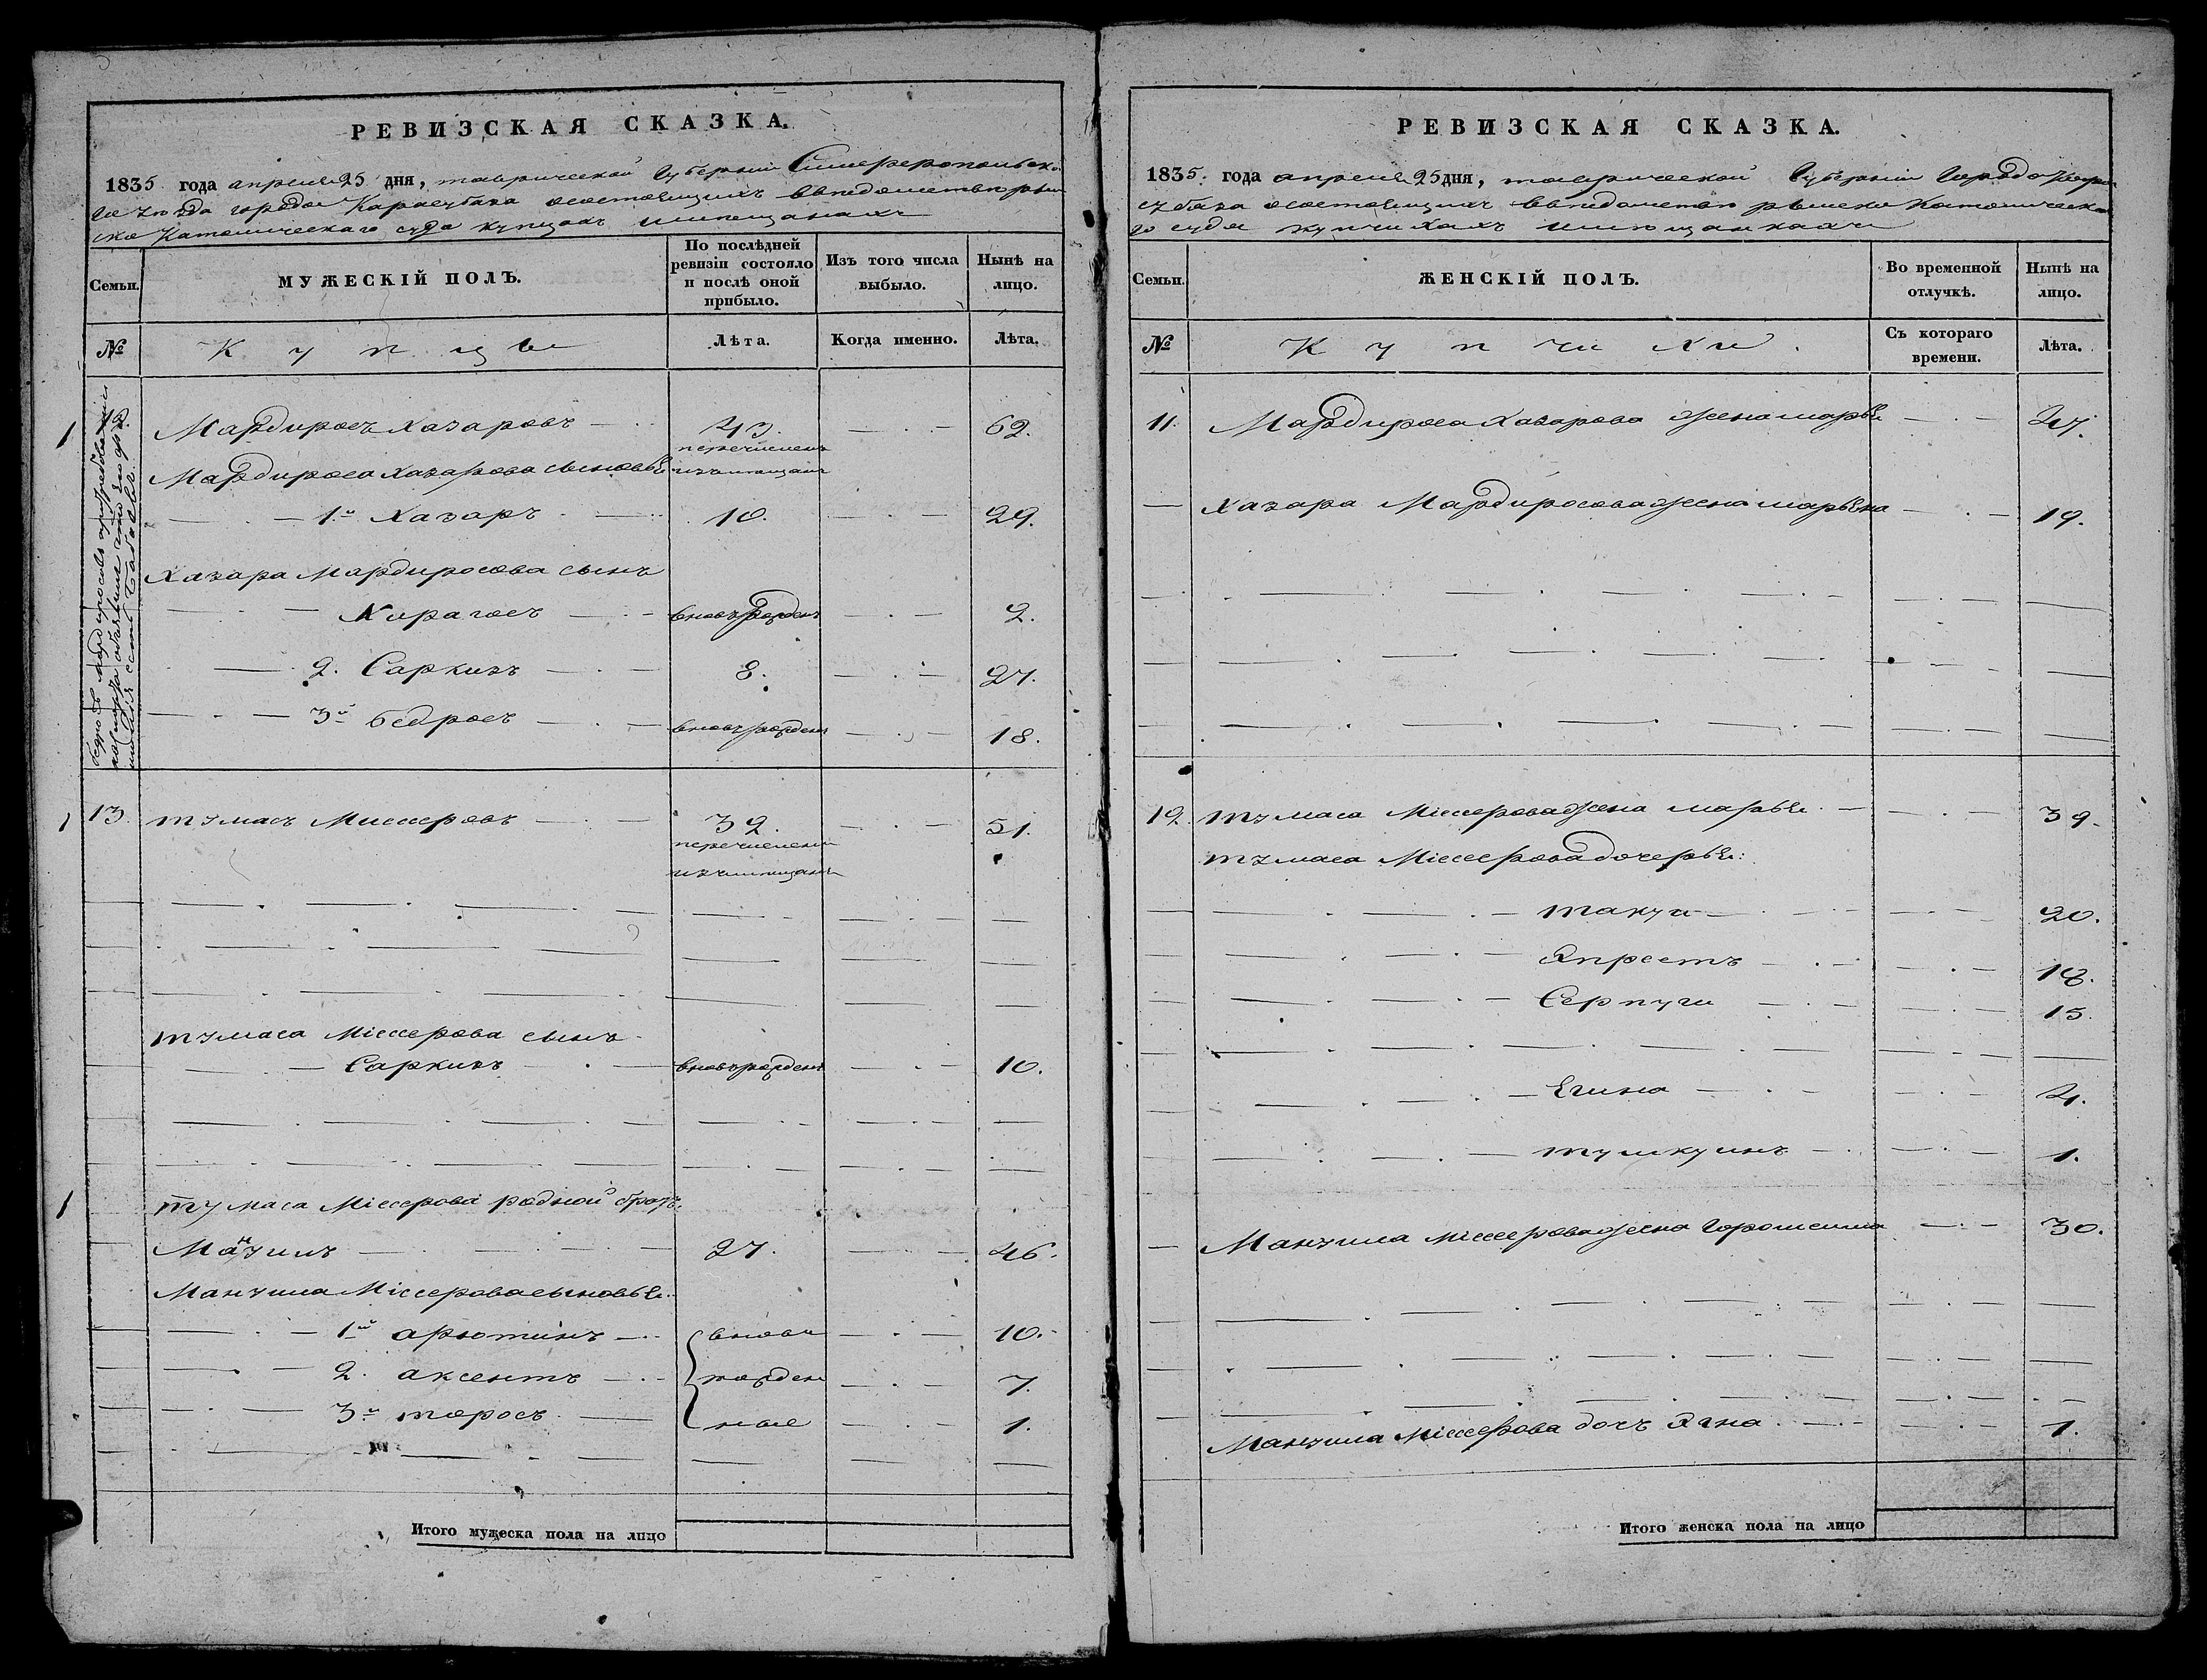 РЕВИЗСКАЯ СКАЗКА.
1835 года апреля 25 дня, таврической Губернии Симферопольска
го уезда города Карасубаза осостоящихъ введомстве рим
ско Католическаго суда купцахъ имещанахъ
Семьи.
МУЖЕСКІЙ ПОЛЪ.
По послѣдней ревизіи состояло и послѣ оной прибыло.
Изъ того числа выбыло.
Нынѣ на лицо.
№
Купцы
Лѣта.
Когда именно.
Лѣта.
Мардиросъ Хазаровъ 43. 62.
перечисленъ
Мардироса Хазарова сыновья измещанъ
1й Хазаръ 10. 29.
Хазара Мардиросова сынъ
Киракосъ вновьрожденъ 2.
2. Саркизъ 8. 27.
3й бедросъ вновьрожденъ 18.
13. тумасъ Миссеровъ 32. 51.
перечисленъ
измещанъ
тумаса Міссерова сынъ
Саркизъ вновьрожденъ 10.
тумаса Міссерова родной братъ
Манукъ 27. 46.
Манука Міссерова сыновья
1й арютинъ вновь 10.
2. аксентъ рожден 7.
3й торосъ ные 1.
Итого мужеска пола на лицо
РЕВИЗСКАЯ СКАЗКА.
1835. года апреля 25 дня, таврической Губерніи Города Кара
субаза осостоящихъ введомстве римско Католическа
го суда купчихахъ имещанкахъ
Семьи.
ЖЕНСКІЙ ПОЛЪ.
Во временной отлучкѣ.
Нынѣ на лицо.
№
Купчихи.
Съ котораго времени.
Лѣта.
11. Мардироса Хазарова жена марья 47.
Хазара Мардиросова жена марьяна 19.
12. тумаса Міссерова жена марья 39.
тумаса Міссерова дочерья:
такуи 20.
Япрсетъ 18.
Серпуги 15.
Егина 4.
тушкуинъ 1.
Манука Міссерова жена Горомсима 30.
Манука Міссерова дочь Ягна 1.
Итого женска пола на лицо